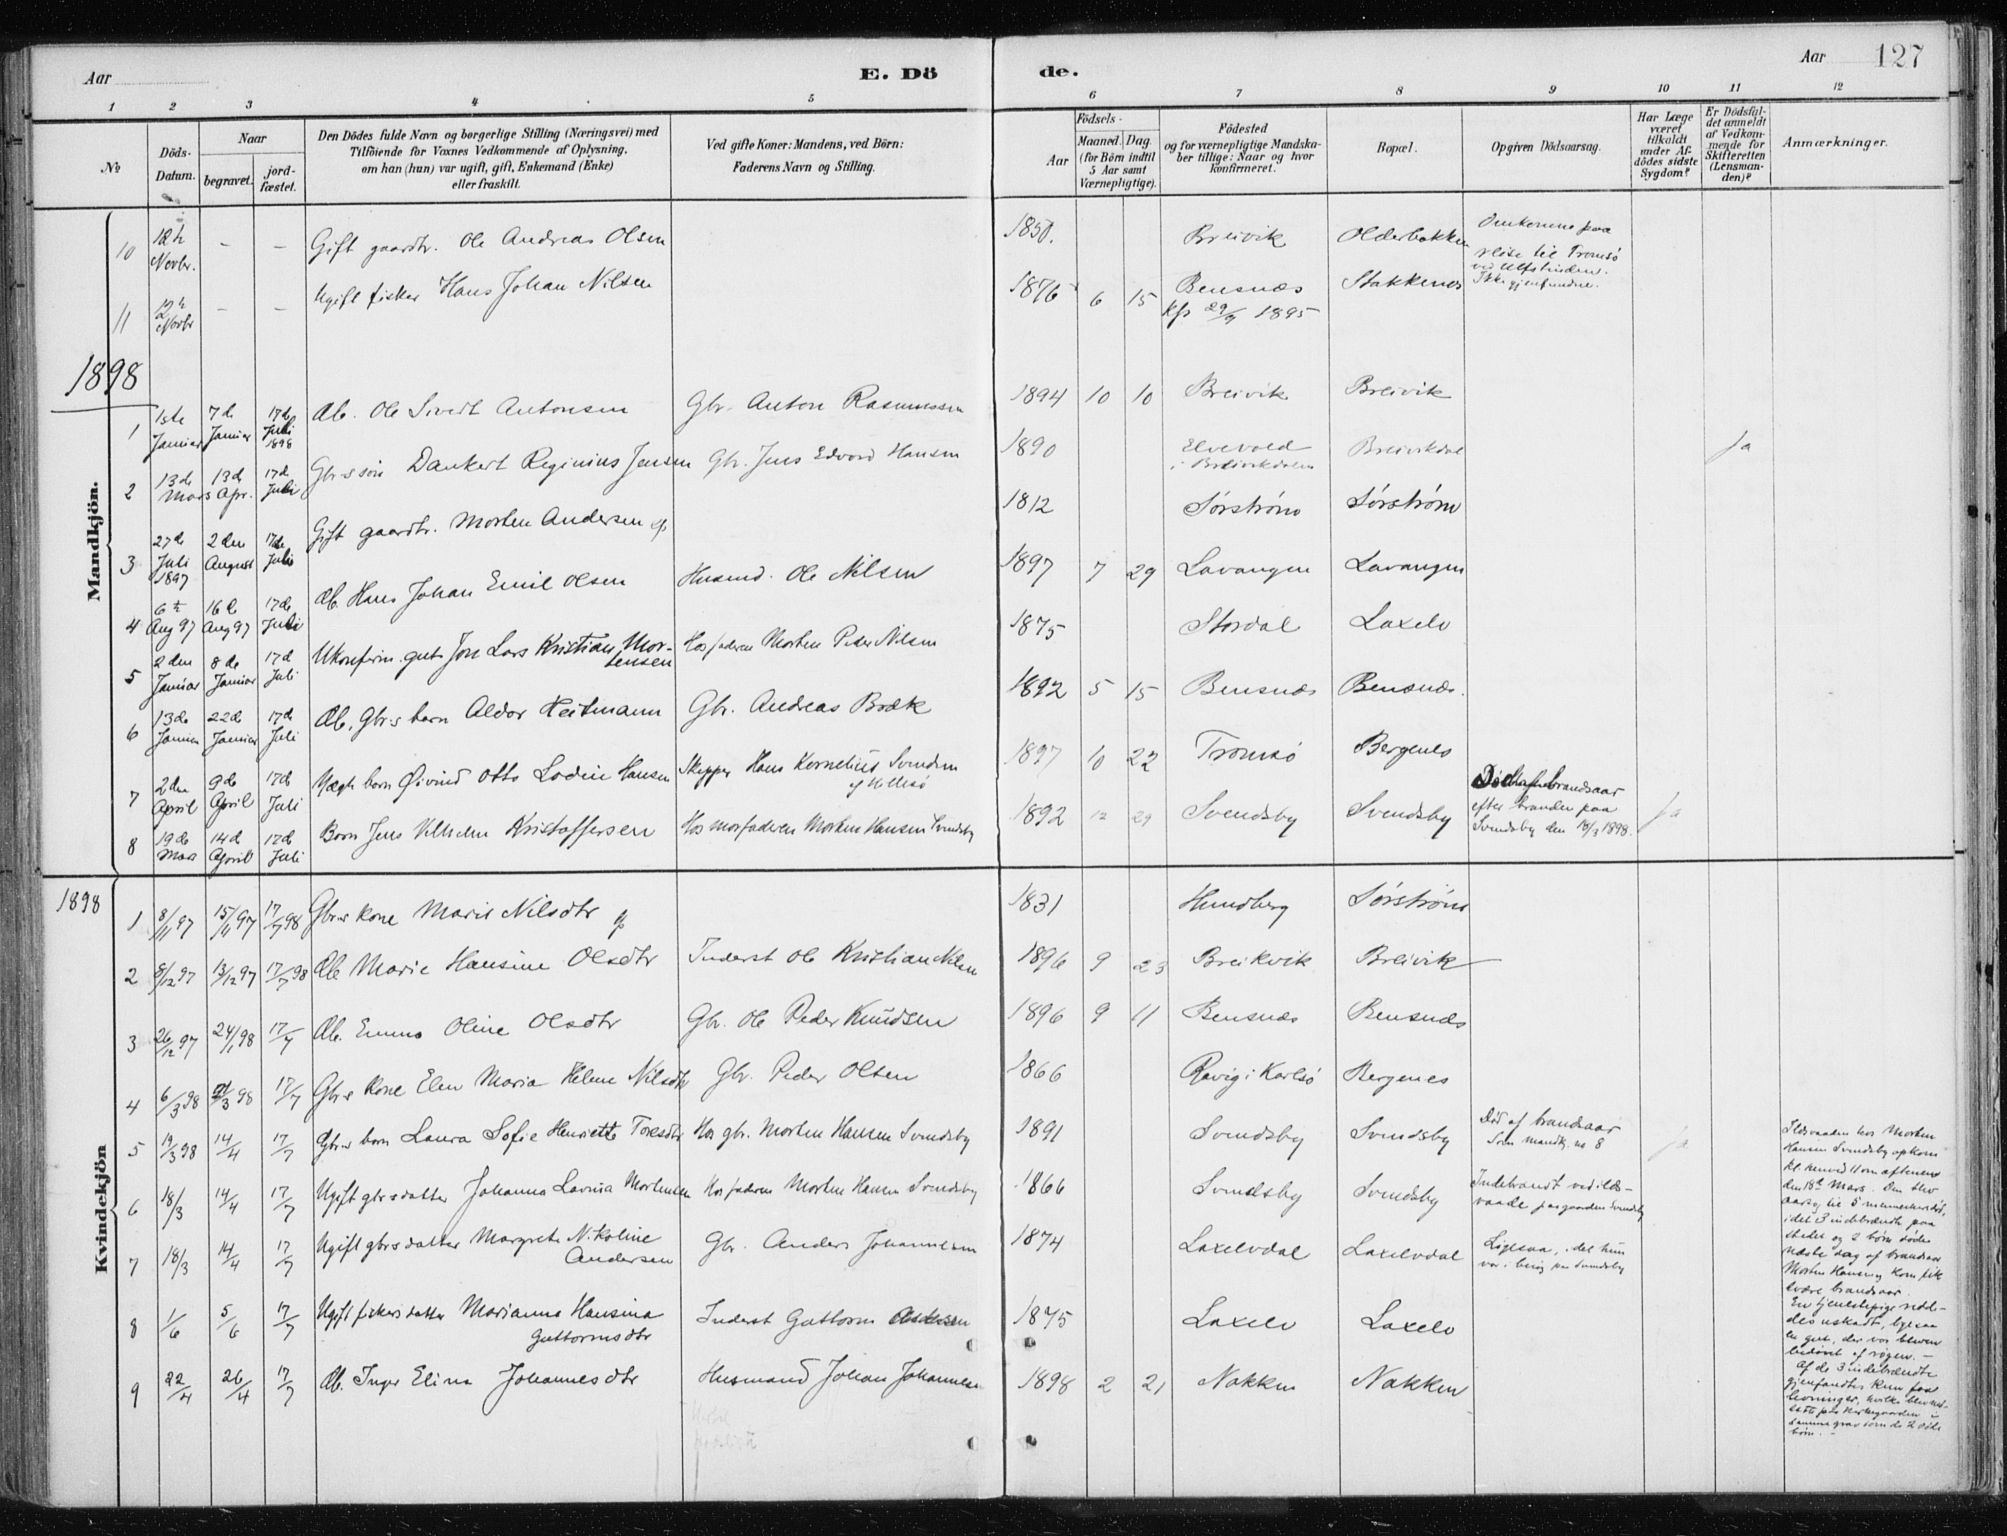 Aar
E. Dö
de.
Aar
127
1 2 3 4 5 6 7 8 9 10 11 12
№
Döds-
Datum.
Naar
begravet.
jord-
fæstet.
Den Dödes fulde Navn og borgerlige Stilling (Næringsvei) med
Tilföiende for Voxnes Vedkommende af Oplysning,
om han (hun) var ugift, gift, Enkemand (Enke)
eller fraskilt.
Ved gifte Koner: Mandens, ved Börn:
Faderens Navn og Stilling.
Födsels-
Aar
Maaned.
Dag.
(for Börn indtil
5 Aar samt
Værnepligtige).
Födested
og for værnepligtige Mandska-
ber tillige: Naar og hvor
konfirmeret.
Bopæl.
Opgiven Dödsaarsag.
Har Læge
været
tilkaldt
under Af-
dödes sidste
Sygdom?
Er Dödsfal-
det anmeldt
af Vedkom-
mende for
Skifteretten
(Lensman-
den)?
Anmærkninger.
Mandkjön.
10 12te Novbr. - - Gift gaardbr. Ole Andreas Olsen 1850. Breivik Olderbakken Omkomne paa
reise til Tromsö
ved Ulfstinden.
Ikke gjenfundne.
11 12te Novbr - - Ugift fisker Hans Johan Nilsen 1876 6 15 Bensnæs Stakkenes
kfs 29/9 1895
1898
1 1ste Januar 7de Januar 17de Juli 1898 Db. Ole Sivert Antonsen Gbr. Anton Rasmussen 1894 10 10 Breivik Breivik
2 13de Mars 13de Apr. 17de Juli Gbr-s søn Dankert Reginius Jensen Gbr. Jens Edvard Hansen 1890 Elvevold
i Breivikdalen Breivikdal Ja
3 27de Juli 1897 2den August 17de Juli Gift gaardbr. Morten Andersen 1812 Sørstrøm Sørstrøm
4 6te Aug 97 16de Aug 97 17de Juli Db. Hans Johan Emil Olsen Husmd. Ole Nilsen 1897 7 29 Lavangen Lavangen
5 2den Januar 8de Januar 17de Juli Ukonfirm. gut Jon Lars Kristian Mor-
tensen Hos faderen Morten Peder Nilsen 1875 Stordal Laxelv
6 13de Januar 22de Januar 17de Juli Db. Gbr-s barn Aldor Heitmann Gbr. Andreas Bræk 1892 5 15 Bensnæs Bensnæs.
7 2den April 9de April 17de Juli Uægte barn Øivind Otto Lodin Hansen Skipper Hans Kornelius Svendsen
af Hillesø 1897 10 22 Tromsø Bergenes
8 19de Mars 14de April 17de Juli Barn Jens Vilhelm Kristoffersen Hos morfaderen Morten Hansen Svendsby 1892 12 29 Svendsby Svendsby Død af brandsaar
efter branden paa
Svendsby den 18/3 1898. Ja
Kvindekjön
1898
1 8/11 97 15/11 97 17/7 98 Gbr-s kone Marit Nilsdtr 1831 Hundberg Sørstrøm
2 8/12 97 13/12 97 17/7 98 Db. Marie Hansine Olsdtr Inderst Ole Kristian Nilsen 1896 9 23 Breikvik Breivik
3 26/12 97 24/1 98 17/7 Db. Emma Oline Olsdtr Gbr. Ole Peder Knudsen 1896 9 11 Bensnæs Bensnæs
4 6/3 98 21/3 98 17/7 Gbr-s kone Elen Maria Helene Nilsdtr Gbr. Peder Olsen 1866 Ravig i Karlsö Bergenes
5 19/3 98 14/4 17/7 Gbr-s barn Laura Sofie Henriette Toresdtr Hos gbr. Morten Hansen Svendsby 1891 Svendsby Svendsby Død af brandsaar
Som mandkj. no 8 ja
6 18/3 14/4 17/7 Ugift gbrs datter Johanna Lovisa Mortensen Hos faderen Morten Hansen Svendsby 1866 Svendsby Svendsby Indebrændt ved ilds-
vaade paa gaarden Svendsby
7 18/3 14/4 17/7 Ugift gbrs datter Margrete Nikoline
Andersen Gbr. Anders Johannesen 1874 Laxelvdal Laxelvdal Ligesaa, idet hun
var i besøg paa Svendsby
8 1/6 5/6 17/7 Ugift fiskers datter Marianna Hansina
Guttormsdtr Inderst Guttorm 1875 Laxelv Laxelv
9 22/4 26/4 17/7 Db. Inger Elina Johannesdtr Husmand Johan Johannesen 1898 2 21 Nakken Nakken
Ildsvaaden hos Morten
Hansen Svendsby opkom
kl. henved 11 om aftenen
den 18de Mars. Den blev
aarsag til 5 menneskers død,
idet 3 indebrændte paa
stedet og 2 børn døde
næste dag af brandsaar
Morten Hansen og kone fik
svære brandsaar.
En tjenestepige redde-
des uskadt, ligesaa
en gut, der var bleven
bedøvet af røgen. -
Af de 3 indebrændte
gjenfandtes kun faa
levninger, hvilke blev ned-
satte paa kirkegaarden i
samme grav som de 2 døde
børn. -